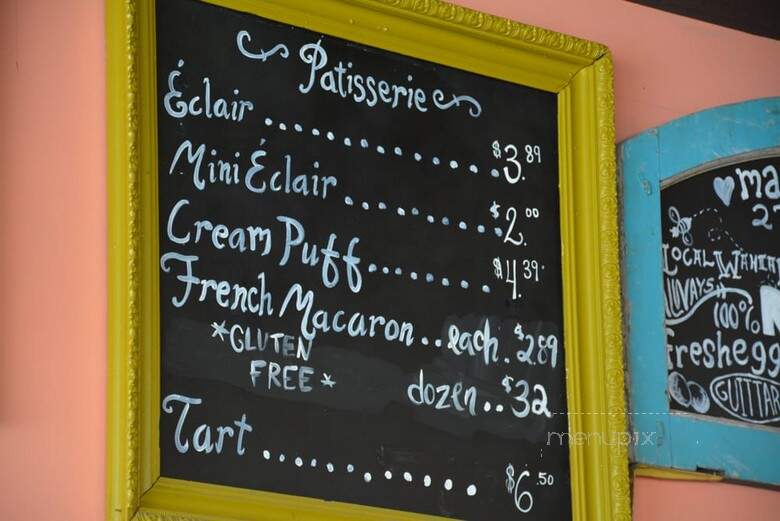 Patisserie
Éclair ............... $3.89
Mini Éclair ............ $2.00
Cream Puff ......... $4.39
French Macaron .. each . $2.89
*GLUTEN
FREE*
dozen .. $32
Tart ............... $6.50
menupix
ma
27
LOCAL
ALWAYS
100%
fresh egg